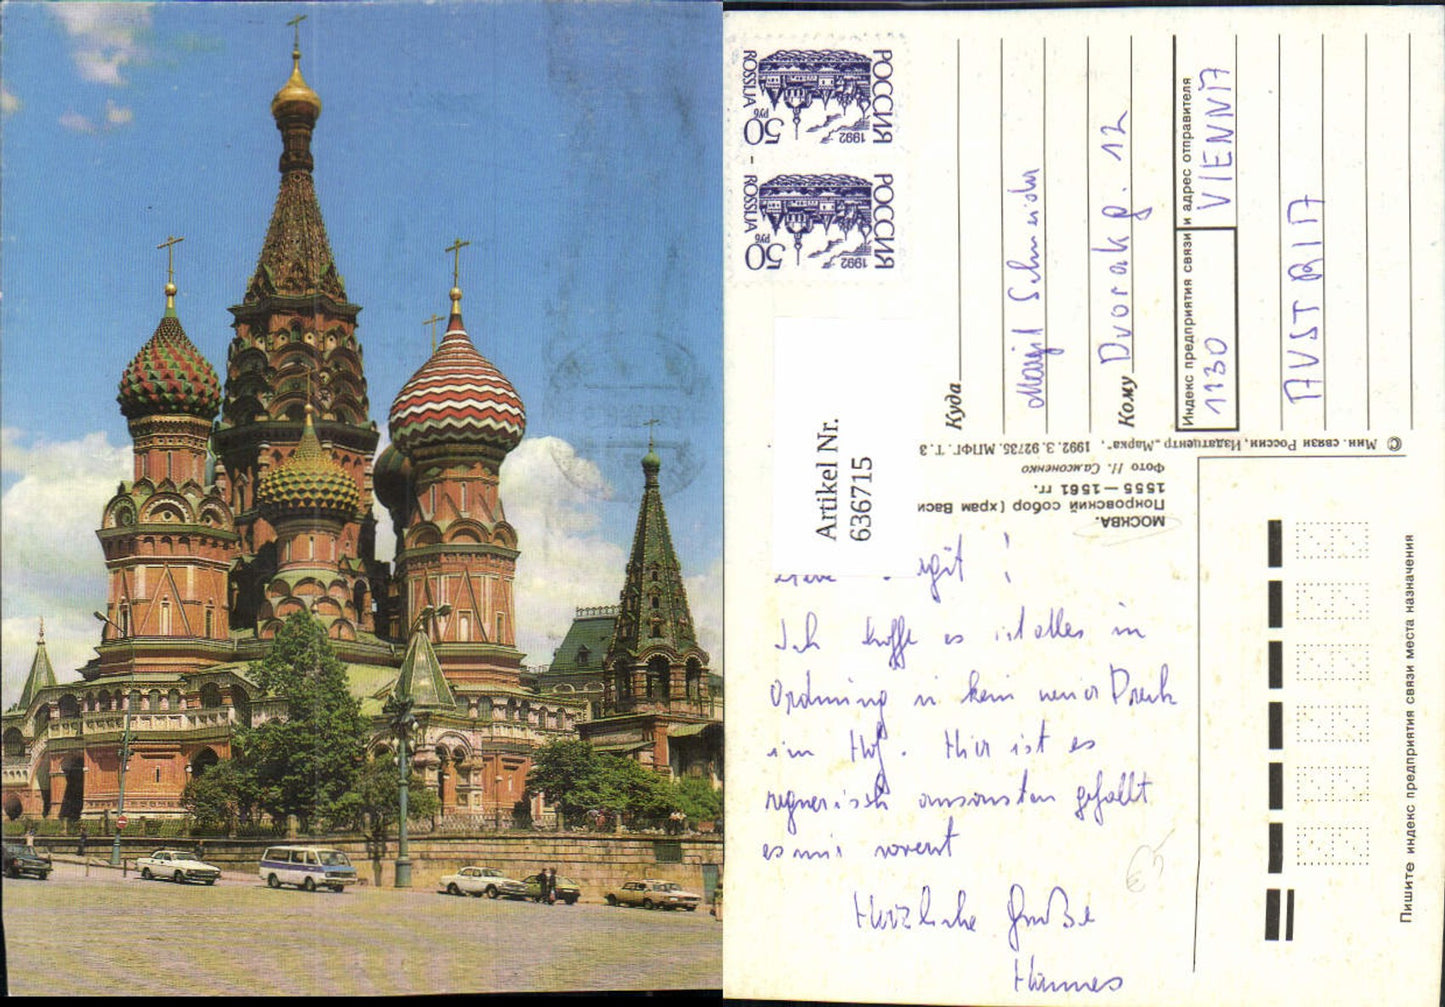 РОССИЯ
1992
50
РУБ
ROSSIJA
РОССИЯ
1992
50
РУБ
ROSSIJA
Artikel Nr.
636715
МОСКВА.
Покровский собор (храм Васи
1555—1561 гг.
Фото Н. Самсоненко
© Мин. связи России, Издатцентр „Марка", 1992. З. 92735. МПФГ. Т. 3
Куда
Schneider
Кому Dvorakg. 12
Индекс предприятия связи и адрес отправителя
1130 VIENNA
AUSTRIA
Пишите индекс предприятия связи места назначения
git !
Ich hoffe es ist alles in
Ordnung u kein neuer Dreck
im Hof. Hier ist es
regnerisch ansonsten gefällt
es mir
Herzliche Grüße
Hannes
€5